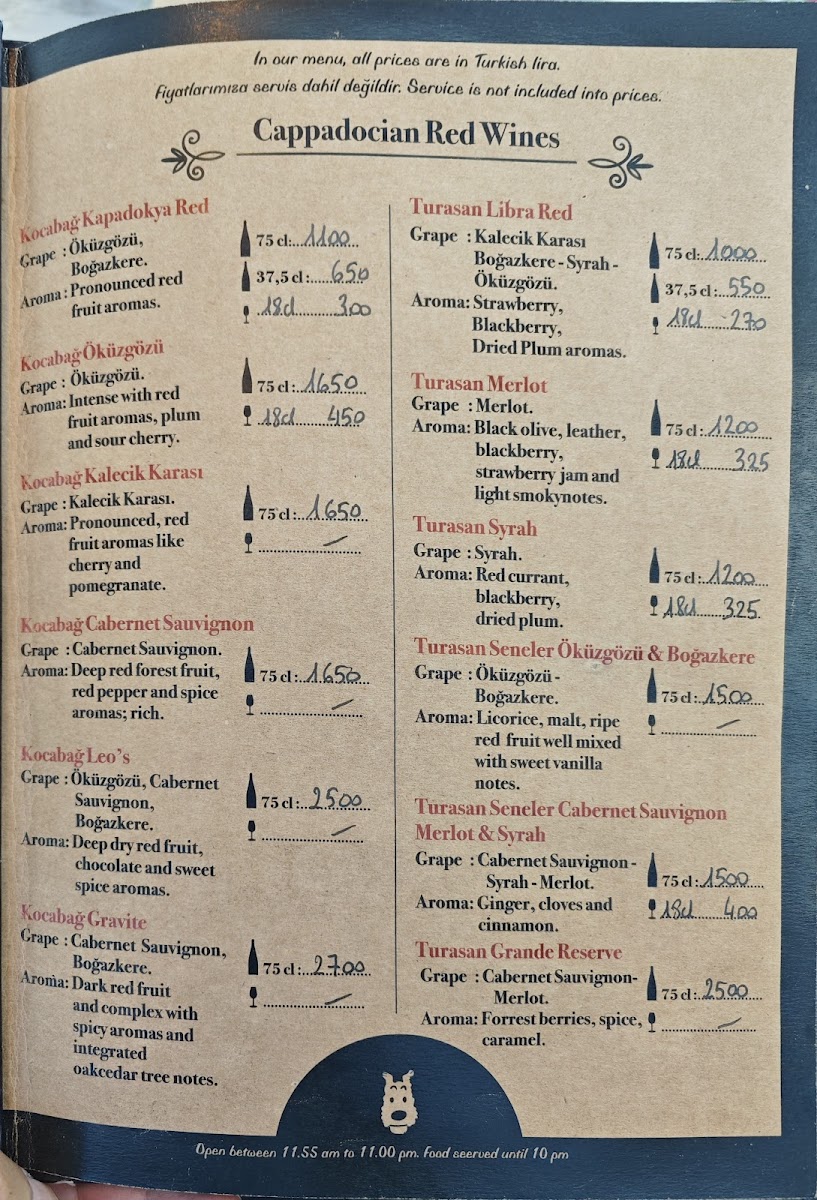 In our menu, all prices are in Turkish lira.
Fiyatlarımıza servis dahil değildir. Service is not included into prices.
Cappadocian Red Wines
Kocabağ Kapadokya Red
Grape : Öküzgözü,
Boğazkere.
Aroma: Pronounced red
fruit aromas.
75 cl:...1100
37,5 cl:.....650
18cl 300
Kocabağ Öküzgözü
Grape : Öküzgözü.
Aroma: Intense with red
fruit aromas, plum
and sour cherry.
75 cl:..1650
18cl 450
Kocabağ Kalecik Karası
Grape : Kalecik Karası.
Aroma: Pronounced, red
fruit aromas like
cherry and
pomegranate.
75 cl:..1650
—
Kocabağ Cabernet Sauvignon
Grape : Cabernet Sauvignon.
Aroma: Deep red forest fruit,
red pepper and spice
aromas; rich.
75 cl:..1650
—
Kocabağ Leo's
Grape : Öküzgözü, Cabernet
Sauvignon,
Boğazkere.
Aroma: Deep dry red fruit,
chocolate and sweet
spice aromas.
75 cl:..2500
—
Kocabağ Gravite
Grape : Cabernet Sauvignon,
Boğazkere.
Aroma: Dark red fruit
and complex with
spicy aromas and
integrated
oakcedar tree notes.
75 cl:...2700
—
Turasan Libra Red
Grape : Kalecik Karası
Boğazkere - Syrah -
Öküzgözü.
Aroma: Strawberry,
Blackberry,
Dried Plum aromas.
75 cl:..1000
37,5 cl:...550
18cl 270
Turasan Merlot
Grape : Merlot.
Aroma: Black olive, leather,
blackberry,
strawberry jam and
light smokynotes.
75 cl:..1200
18cl 325
Turasan Syrah
Grape : Syrah.
Aroma: Red currant,
blackberry,
dried plum.
75 cl:..1200
18cl 325
Turasan Seneler Öküzgözü & Boğazkere
Grape : Öküzgözü -
Boğazkere.
Aroma: Licorice, malt, ripe
red fruit well mixed
with sweet vanilla
notes.
75 cl:..1500
—
Turasan Seneler Cabernet Sauvignon
Merlot & Syrah
Grape : Cabernet Sauvignon -
Syrah - Merlot.
Aroma: Ginger, cloves and
cinnamon.
75 cl:..1500
18cl 400
Turasan Grande Reserve
Grape : Cabernet Sauvignon-
Merlot.
Aroma: Forrest berries, spice,
caramel.
75 cl:..2500
—
Open between 11.55 am to 11.00 pm. Food seerved until 10 pm